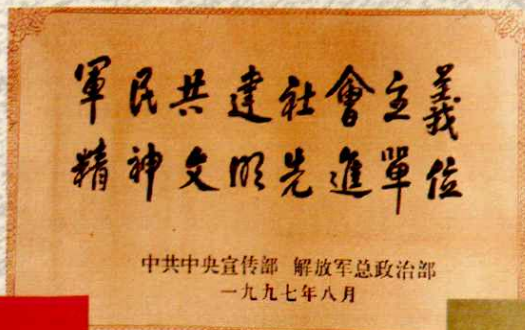 軍民共建社會主義
精神文明先進單位
中共中央宣传部 解放军总政治部
一九九七年八月